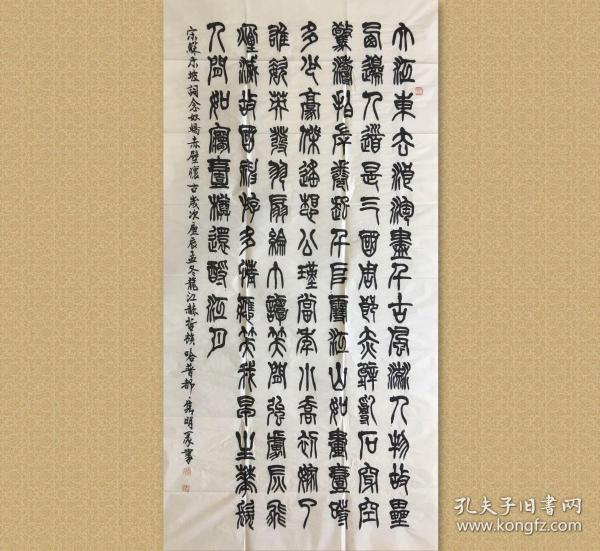 大江東去浪淘盡千古風流人物故壘
西邊人道是三國周郎赤壁亂石穿空
驚濤拍岸卷起千堆雪江山如畫壹時
多少豪傑遙想公瑾當年小喬初嫁了
雄姿英發羽扇綸巾談笑間強虜灰飛
煙滅故國神游多情應笑我早生華髮
人間如夢壹樽還酹江月
宋蘇東坡詞念奴嬌赤壁懷古歲次庚辰孟冬龍江赫哲族哈普都·雋明篆書
孔夫子旧书网
www.kongfz.com